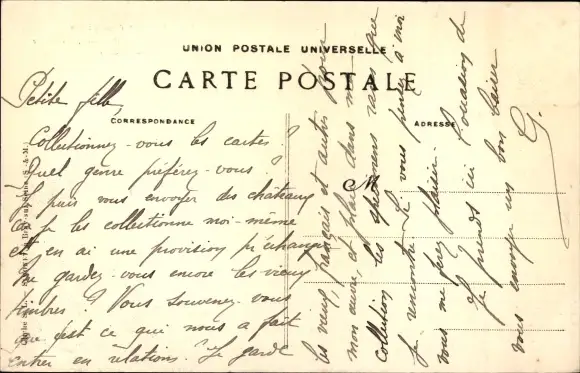 UNION POSTALE UNIVERSELLE
CARTE POSTALE
CORRESPONDANCE
ADRESSE
M
Petite fille,
Collectionnez-vous les cartes ?
Quel genre préférez-vous ?
Je puis vous envoyer des châteaux
car je les collectionne moi-même
et en ai une provision pr échanger
Ne gardez-vous encore les vieux
timbres ? Vous souvenez-vous
que c'est ce qui nous a fait
entrer en relations. Je garde
les vieux, français et autres pour
mon aussi, et place dans ma
collection les spécimens rares que
je rencontre. Je vous pensez à moi
vous me ferez plaisir.
Je prends ici l'occasion de
vous envoyer un bon baiser
G.